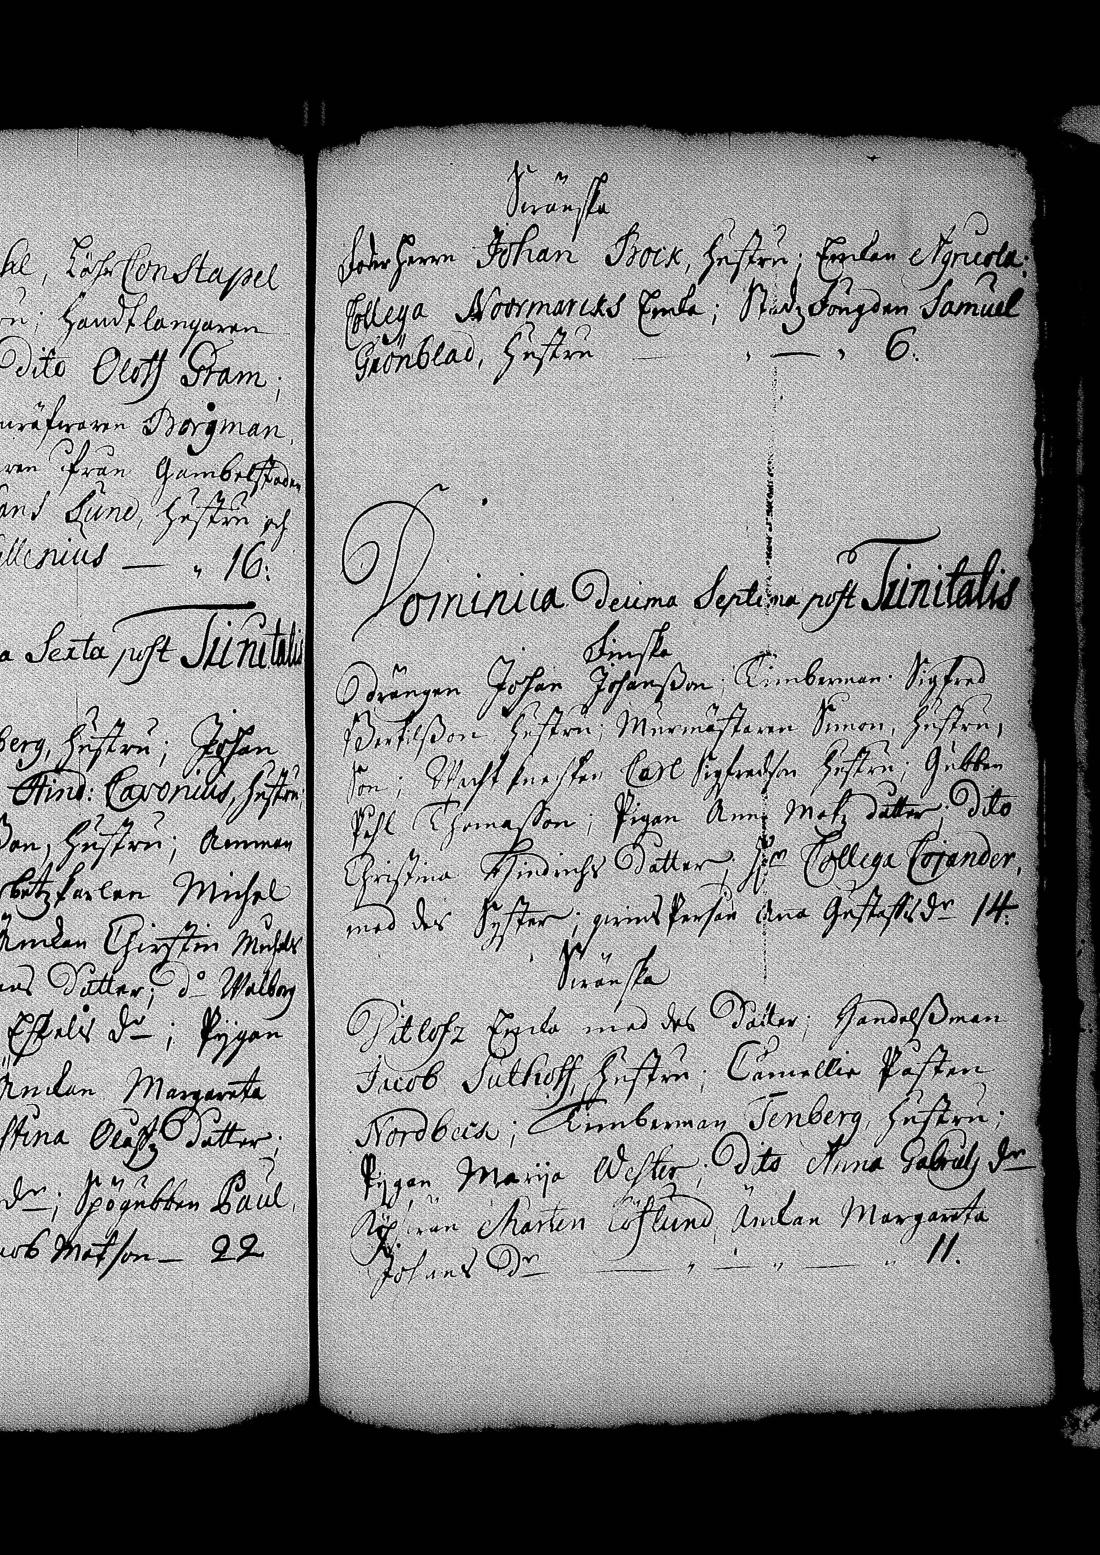 kel, Löhr Constapel
on; Handtlangaren
Dito Oloff Stam;
Borgman,
aren från Gambelstaden
ans Lund, Hustru och
llenius — „ 16:
a Sexta post Trinitatis
berg, Hustru; Johan
Hind: Cavonius, Hustru
son, Hustru; Amman
karlen Michel
Änckan Christin Michels
ans Dotter; do Walborg
Eskels dr; Pygan
Änckan Margareta
stina Oloffz Dotter;
dr; Spögubben Paul,
cob Matson — 22
Swänska
Johan Bock, Hustru; Enckan Agricola:
Collega Noormarcks Encka; Stadz Fougden Samuel
Grönblad, Hustru — „ — „ 6:
Dominica Decima Septima post Trinitatis
Finska
Drängen Johan Johansson; Timberman Sigfred
Bertilsson Hustru; Murmästaren Simon, Hustru,
Son; Wacht knechten Carl Sigfredson Hustru; Gubben
Påhl Thomasson; Pigan Anna Matz dotter; Dito
Christina Hindrichs Dotter; Hr Collega Cajander,
med des Syster; Ana Gustafs dr 14:
Swänska
Encka med des Dotter; Handelssman
Jacob Suthoff, Hustru; Camellie Påsten
Nordbeck; Timberman Tenberg, Hustru;
Pygan Marija Wester; Dito Anna Gabriels dr
Mårten Löflund, Änckan Margareta
Johans Dr — „ — „ — „ 11.